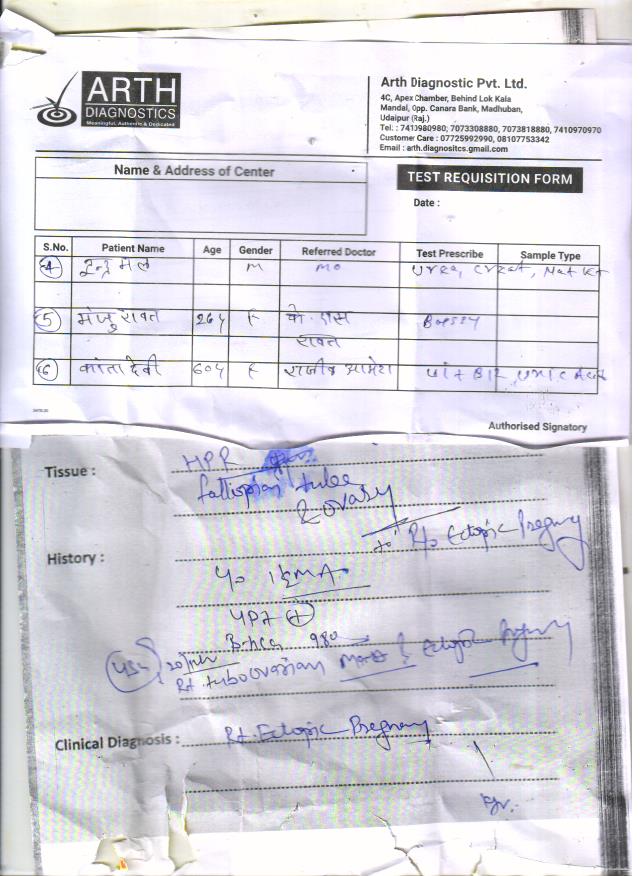 ARTH
DIAGNOSTICS
Meaningful, Authentic & Dedicated
Arth Diagnostic Pvt. Ltd.
4C, Apex Chamber, Behind Lok Kala
Mandal, Opp. Canara Bank, Madhuban,
Udaipur (Raj.)
Tel. : 7410980980; 7073308880, 7073818880, 7410970970
Customer Care : 07725992990, 08107753342
Email : arth.diagnositcs.gmail.com
Name & Address of Center
TEST REQUISITION FORM
Date :
S.No. Patient Name Age Gender Referred Doctor Test Prescribe Sample Type
4 M MO Urea, Creat, Na+ K+
5 मंजु रावत 26y F के. दास Boespy
रावत
6 कांता देवी 60y F राजीव आमेटा B12
Authorised Signatory
Tissue : HPR
fallopian tube
& ovary
Rt. Ectopic Pregnancy
History :
UPT +
B-hCG 980
Rt. tuboovarian Mass ? Ectopic Pregnancy
Clinical Diagnosis : Rt. Ectopic Pregnancy